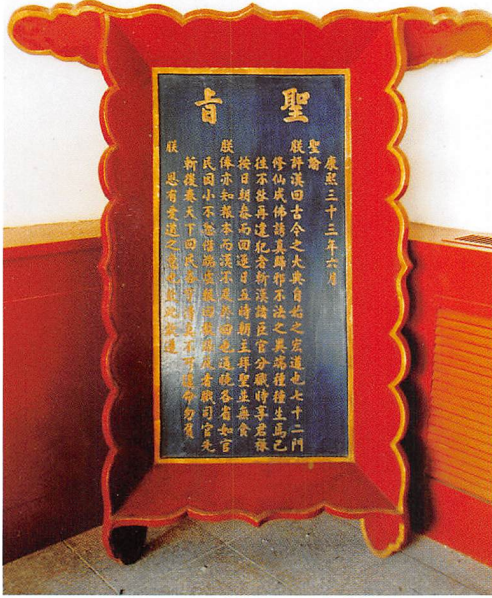 聖旨
康熙三十三年六月
聖諭
朕評漢回古今之大典自始之宏道也七十二門
修仙成佛誘真歸邪不法之異端種種生焉已
往不咎再違犯者斬漢諸臣官分職時享君祿
按日朝參而回逐日五時朝主拜聖並無食
朕俸亦知報本而漢不及於回也通曉各省如官
民因小不忿借端虛報回教謀反者職司官先
斬後奏天下回民各守清真不可違命勿負
朕 恩有愛道之意也欽此欽遵